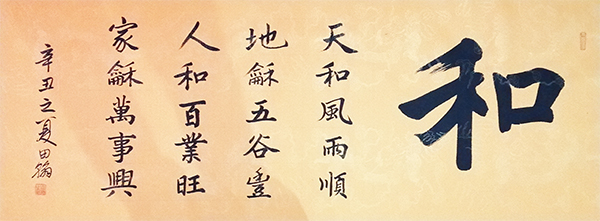 和
天和風雨順
地龢五谷豐
人和百業旺
家龢萬事興
辛丑之夏田翁